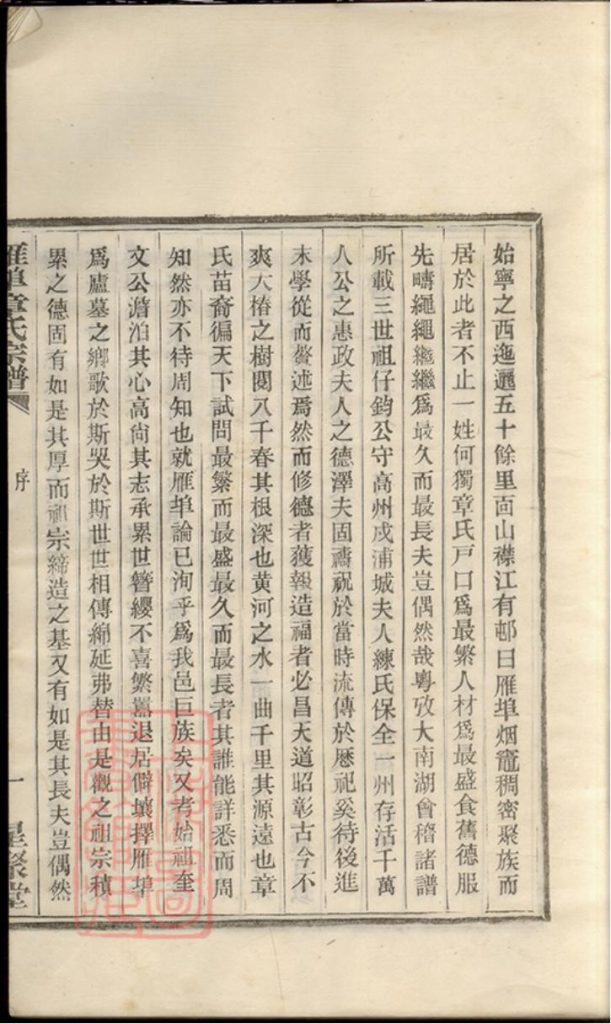 始寧之西迤邐五十餘里面山襟江有邨曰雁埠烟竈稠密聚族而
居於此者不止一姓何獨章氏戸口爲最繁人材爲最盛食舊德服
先疇繩繩繼繼爲最久而最長夫豈偶然哉粤攷大南湖會稽諸譜
所載三世祖仔鈞公守高州戍浦城夫人練氏保全一州存活千萬
人公之惠政夫人之德澤夫固禱祝於當時流傳於歷祀奚待後進
末學從而贅述焉然而修德者獲報造福者必昌天道昭彰古今不
爽大椿之樹閱八千春其根深也黄河之水一曲千里其源遠也章
氏苗裔徧天下試問最繁而最盛最久而最長者其誰能詳悉而周
知然亦不待周知也就雁埠論已洵乎爲我邑巨族矣又考始祖奎
文公澹泊其心高尙其志承累世簪纓不喜繁囂退居僻壤擇雁埠
爲廬墓之鄉歌於斯哭於斯世世相傳綿延弗替由是觀之祖宗積
累之德固有如是其厚而祖宗締造之基又有如是其長夫豈偶然
雁埠章氏宗譜 序 一 星聚堂